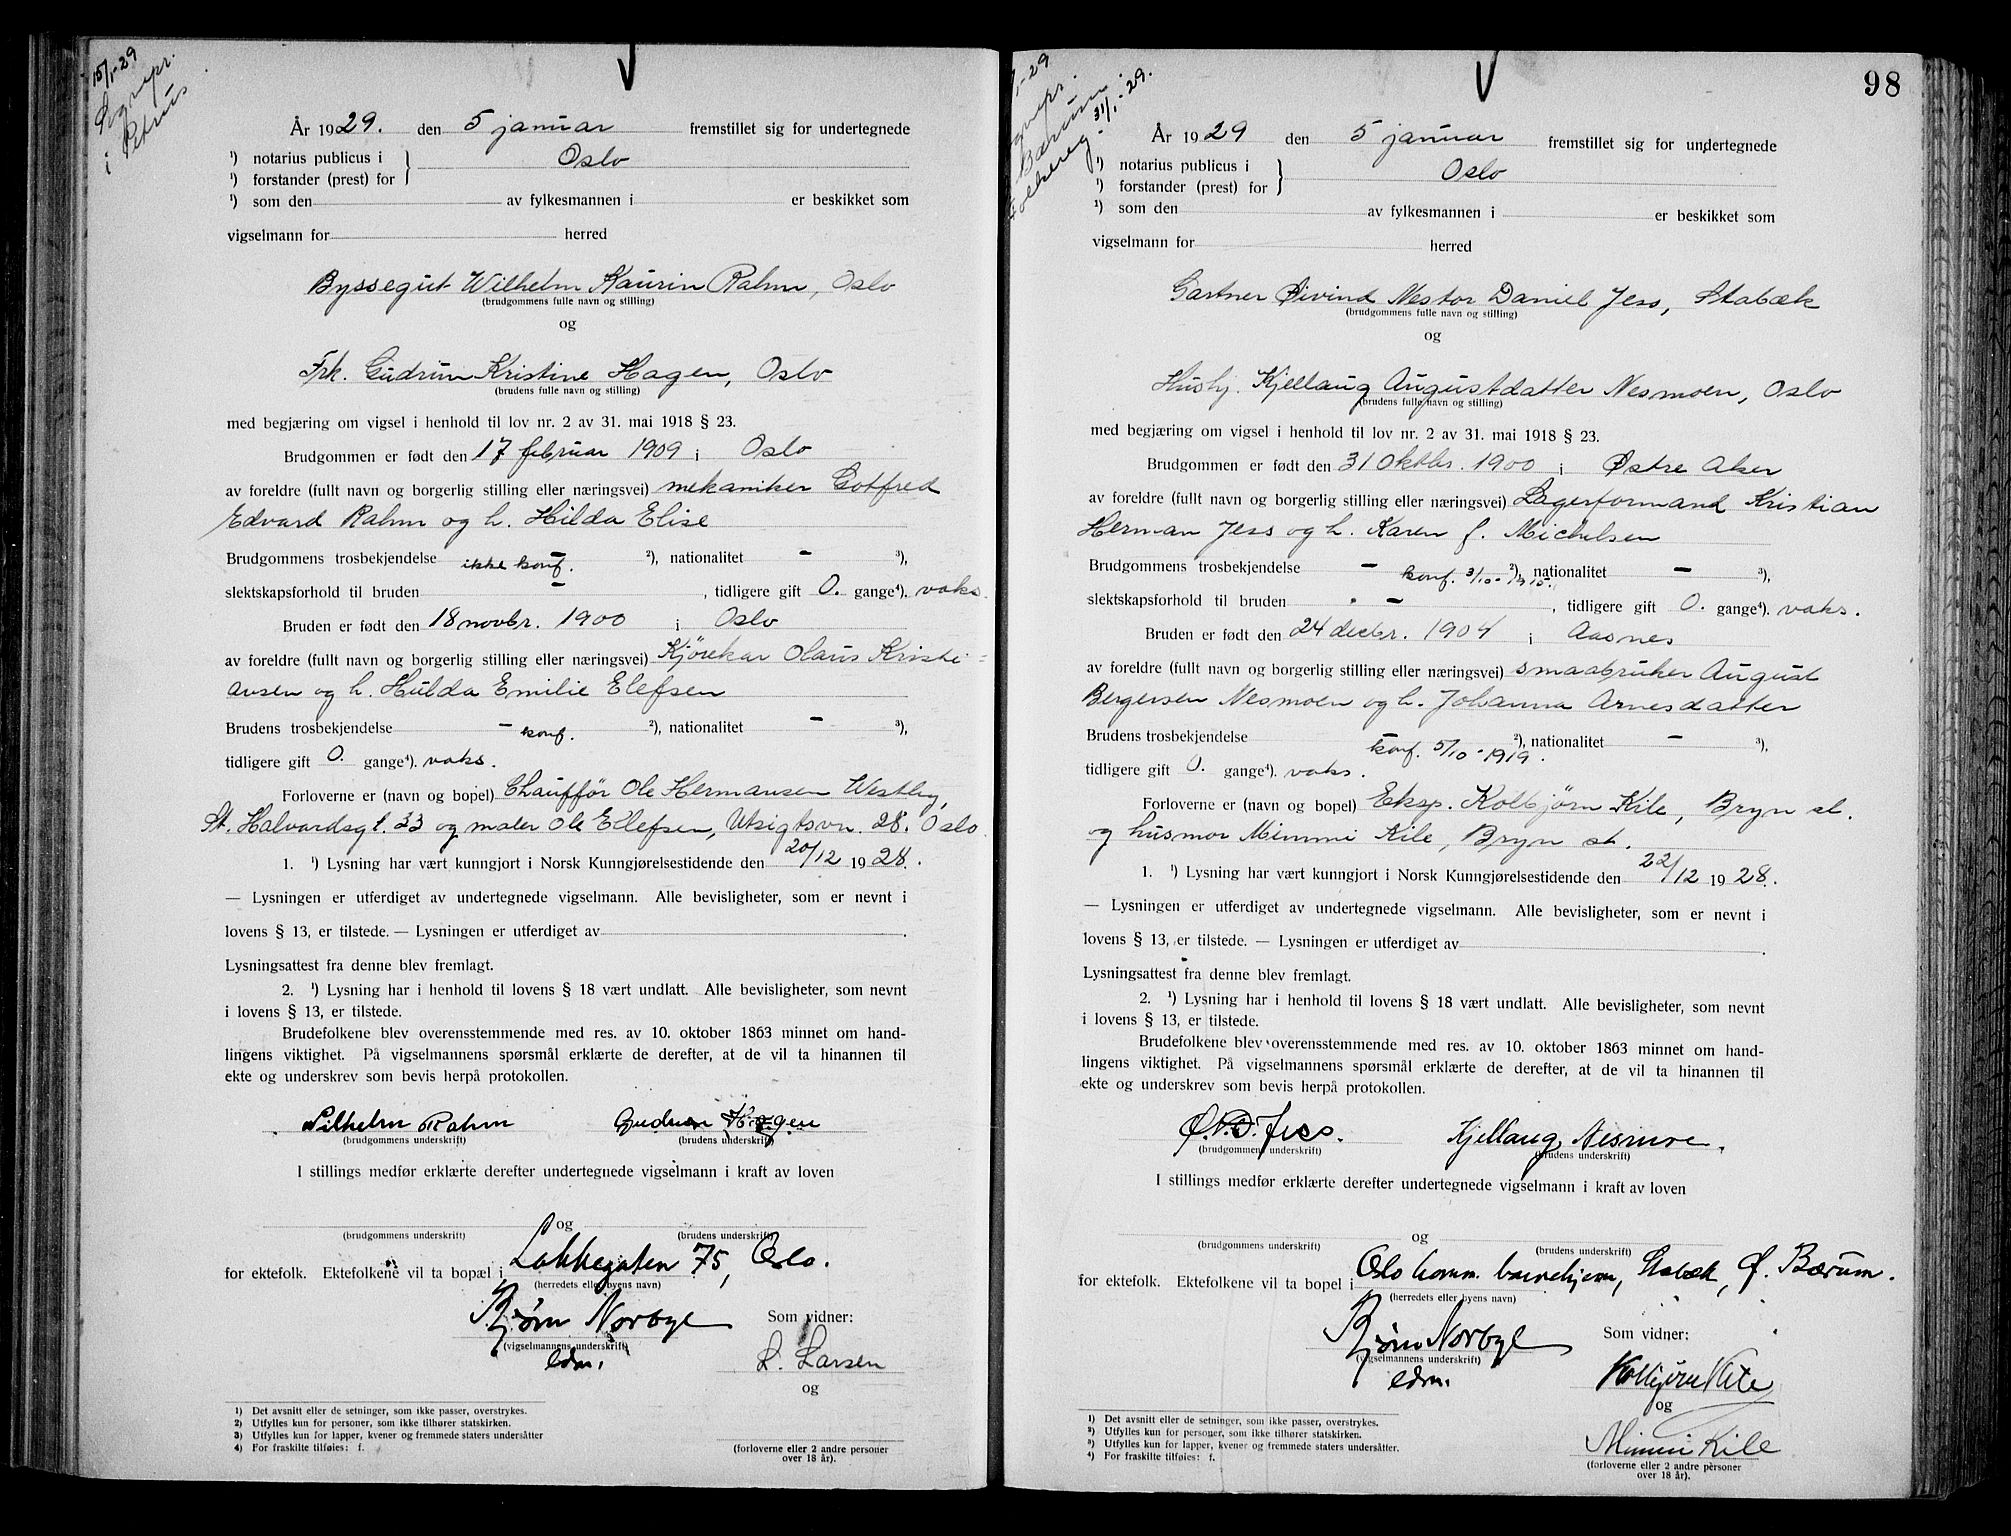 15/1-29
Sognepr.
i Petrus
År 1929. den 5 januar fremstillet sig for undertegnede
¹) notarius publicus i } Oslo
¹) forstander (prest) for
¹) som den av fylkesmannen i er beskikket som
vigselmann for herred
Byssegut Wilhelm Kaurin Rahm, Oslo
(brudgommens fulle navn og stilling)
og
Frk. Gudrun Kristine Hagen, Oslo
(brudens fulle navn og stilling)
med begjæring om vigsel i henhold til lov nr. 2 av 31. mai 1918 § 23.
Brudgommen er født den 17 februar 1909 i Oslo
av foreldre (fullt navn og borgerlig stilling eller næringsvei) mekaniker Gotfred
Edvard Rahm og h. Hilda Elise
Brudgommens trosbekjendelse ikke konf. ²), nationalitet - ³),
slektskapsforhold til bruden - , tidligere gift 0. gange⁴). vaks.
Bruden er født den 18 novbr. 1900 i Oslo
av foreldre (fullt navn og borgerlig stilling eller næringsvei) Kjørekar Olaus Kristi=
ansen og h. Hulda Emilie Elefsen
Brudens trosbekjendelse - konf. ²), nationalitet - ³),
tidligere gift 0. gange⁴). vaks.
Forloverne er (navn og bopel) Chauffør Ole Hermansen Westby,
St. Halvardsgt. 33 og maler Ole Ellefsen, Utsigtsvn. 28. Oslo.
1. ¹) Lysning har vært kunngjort i Norsk Kunngjørelsestidende den 20/12 1928.
— Lysningen er utferdiget av undertegnede vigselmann. Alle bevisligheter, som er nevnt i
lovens § 13, er tilstede. — Lysningen er utferdiget av .
Lysningsattest fra denne blev fremlagt.
2. ¹) Lysning har i henhold til lovens § 18 vært undlatt. Alle bevisligheter, som nevnt
i lovens § 13, er tilstede.
Brudefolkene blev overensstemmende med res. av 10. oktober 1863 minnet om hand-
lingens viktighet. På vigselmannens spørsmål erklærte de derefter, at de vil ta hinannen til
ekte og underskrev som bevis herpå protokollen.
Wilhelm Rahm Gudrun Hagen
(brudgommens underskrift) (brudens underskrift)
I stillings medfør erklærte derefter undertegnede vigselmann i kraft av loven
og
(brudgommens underskrift) (brudens underskrift)
for ektefolk. Ektefolkene vil ta bopæl i Lakkegaten 75, Oslo.
(herredets eller byens navn)
Bjørn Norbye Som vidner:
(vigselmannens underskrift)
edm. L. Larsen
og
(forloverne eller 2 andre personer
over 18 år).
1) Det avsnitt eller de setninger, som ikke passer, overstrykes.
2) Utfylles kun for personer, som ikke tilhører statskirken.
3) Utfylles kun for lapper, kvener og fremmede staters undersåtter
4) For fraskilte tilføies: f.
98
Bærum
Folkereg. 31/1-29.
År 1929 den 5 januar fremstillet sig for undertegnede
¹) notarius publicus i } Oslo
¹) forstander (prest) for
¹) som den av fylkesmannen i er beskikket som
vigselmann for herred
Gartner Øivind Nestor Daniel Jess, Stabæk
(brudgommens fulle navn og stilling)
og
Hushj. Kjellaug Augustdatter Nesmoen, Oslo
(brudens fulle navn og stilling)
med begjæring om vigsel i henhold til lov nr. 2 av 31. mai 1918 § 23.
Brudgommen er født den 31 oktbr. 1900 i Østre Aker
av foreldre (fullt navn og borgerlig stilling eller næringsvei) Lagerformand Kristian
Herman Jess og h. Karen f. Michelsen
Brudgommens trosbekjendelse - konf. 3/10-1915. ²), nationalitet - ³),
slektskapsforhold til bruden - , tidligere gift 0. gange⁴). vaks.
Bruden er født den 24 decbr. 1904 i Aasnes
av foreldre (fullt navn og borgerlig stilling eller næringsvei) smaabruker August
Bergersen Nesmoen og h. Johanna Arnesdatter
Brudens trosbekjendelse konf. 5/10-1919. ²), nationalitet - ³),
tidligere gift 0. gange⁴). vaks.
Forloverne er (navn og bopel) Eksp. Kolbjørn Kile, Bryn st.
og husmor Mimmi Kile, Bryn st.
1. ¹) Lysning har vært kunngjort i Norsk Kunngjørelsestidende den 22/12 1928.
— Lysningen er utferdiget av undertegnede vigselmann. Alle bevisligheter, som er nevnt i
lovens § 13, er tilstede. — Lysningen er utferdiget av .
Lysningsattest fra denne blev fremlagt.
2. ¹) Lysning har i henhold til lovens § 18 vært undlatt. Alle bevisligheter, som nevnt
i lovens § 13, er tilstede.
Brudefolkene blev overensstemmende med res. av 10. oktober 1863 minnet om hand-
lingens viktighet. På vigselmannens spørsmål erklærte de derefter, at de vil ta hinannen til
ekte og underskrev som bevis herpå protokollen.
Ø.N.D. Jess. Kjellaug Nesmoe.
(brudgommens underskrift) (brudens underskrift)
I stillings medfør erklærte derefter undertegnede vigselmann i kraft av loven
og
(brudgommens underskrift) (brudens underskrift)
for ektefolk. Ektefolkene vil ta bopel i Oslo komm. barnehjem, Stabæk, Ø. Bærum.
(herredets eller byens navn)
Bjørn Norbye Som vidner:
(vigselmannens underskrift)
edm. Kolbjørn Kile
og
Mimmi Kile
(forloverne eller 2 andre personer
over 18 år).
¹) Det avsnitt eller de setninger, som ikke passer, overstrykes.
²) Utfylles kun for personer, som ikke tilhører statskirken.
³) Utfylles kun for lapper, kvener og fremmede staters undersåtter.
⁴) For fraskilte tilføies: f.